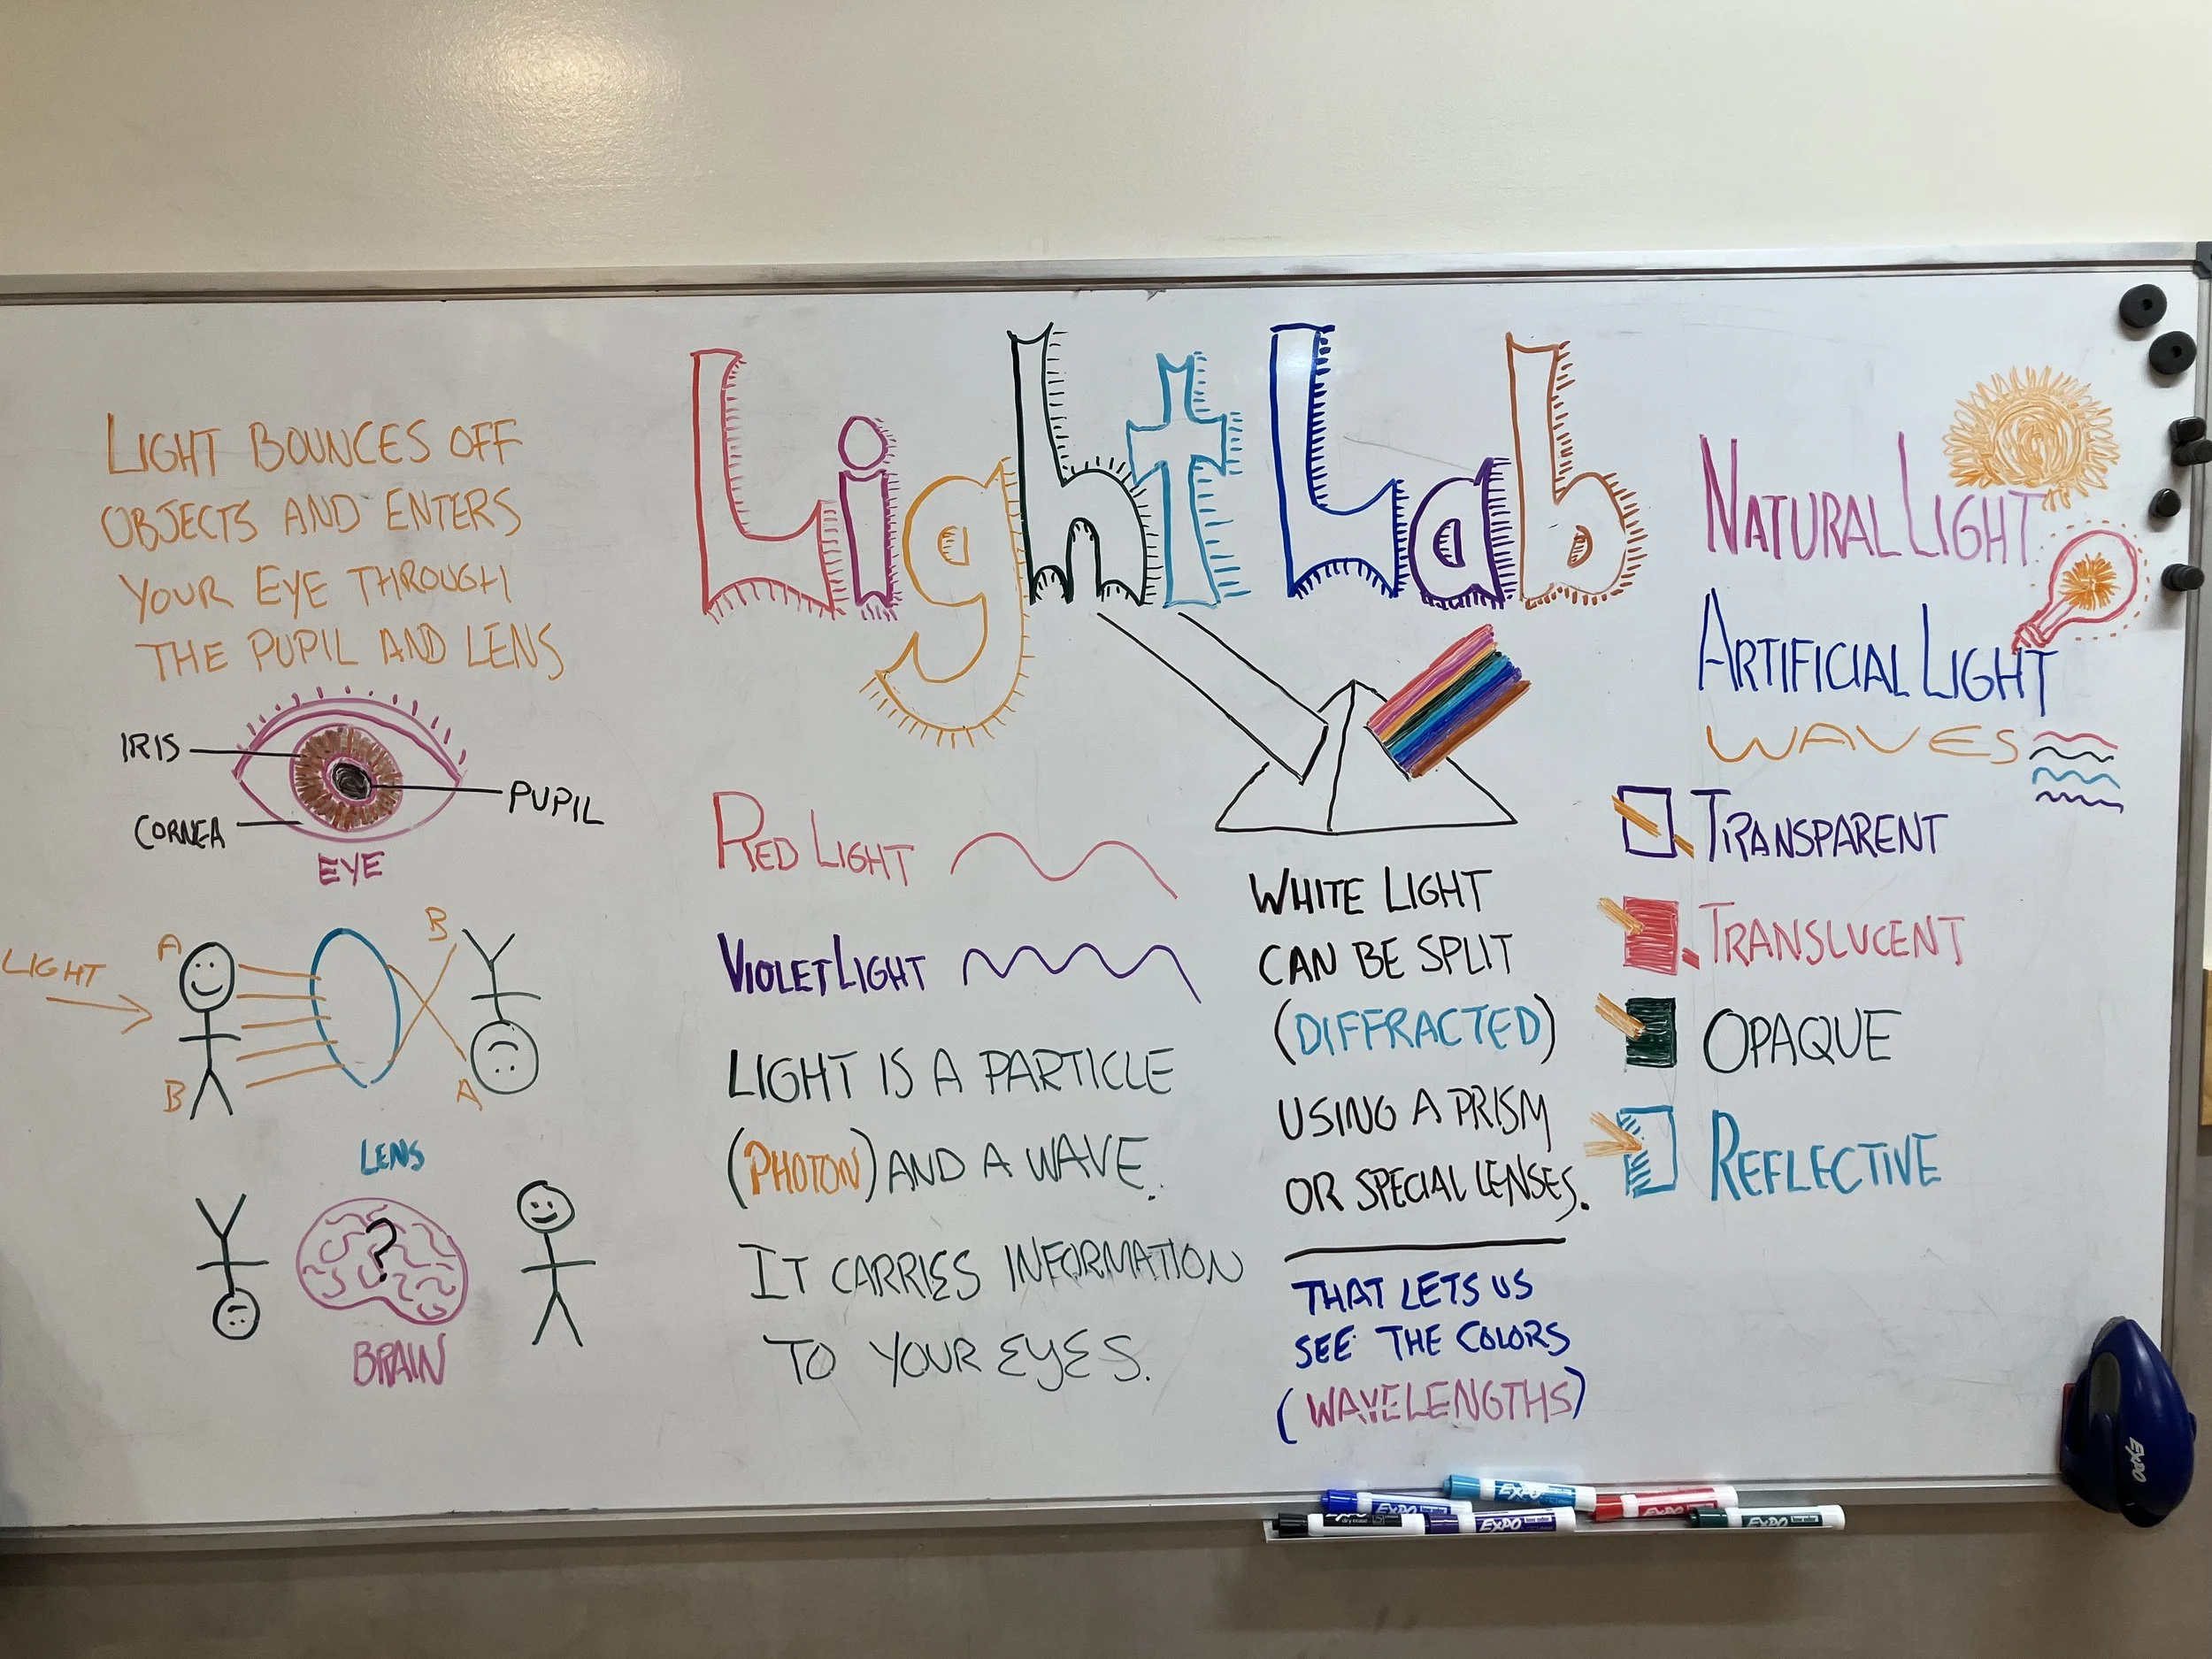 Light Lab
LIGHT BOUNCES OFF
OBJECTS AND ENTERS
YOUR EYE THROUGH
THE PUPIL AND LENS
IRIS
PUPIL
CORNEA
EYE
LIGHT
A
B
B
A
LENS
?
BRAIN
RED LIGHT
VIOLET LIGHT
LIGHT IS A PARTICLE
(PHOTON) AND A WAVE.
IT CARRIES INFORMATION
TO YOUR EYES.
WHITE LIGHT
CAN BE SPLIT
(DIFFRACTED)
USING A PRISM
OR SPECIAL LENSES.
THAT LETS US
SEE THE COLORS
(WAVELENGTHS)
NATURAL LIGHT
ARTIFICIAL LIGHT
WAVES
TRANSPARENT
TRANSLUCENT
OPAQUE
REFLECTIVE
EXPO
EXPO
EXPO
EXPO
EXPO
EXPO
EXPO